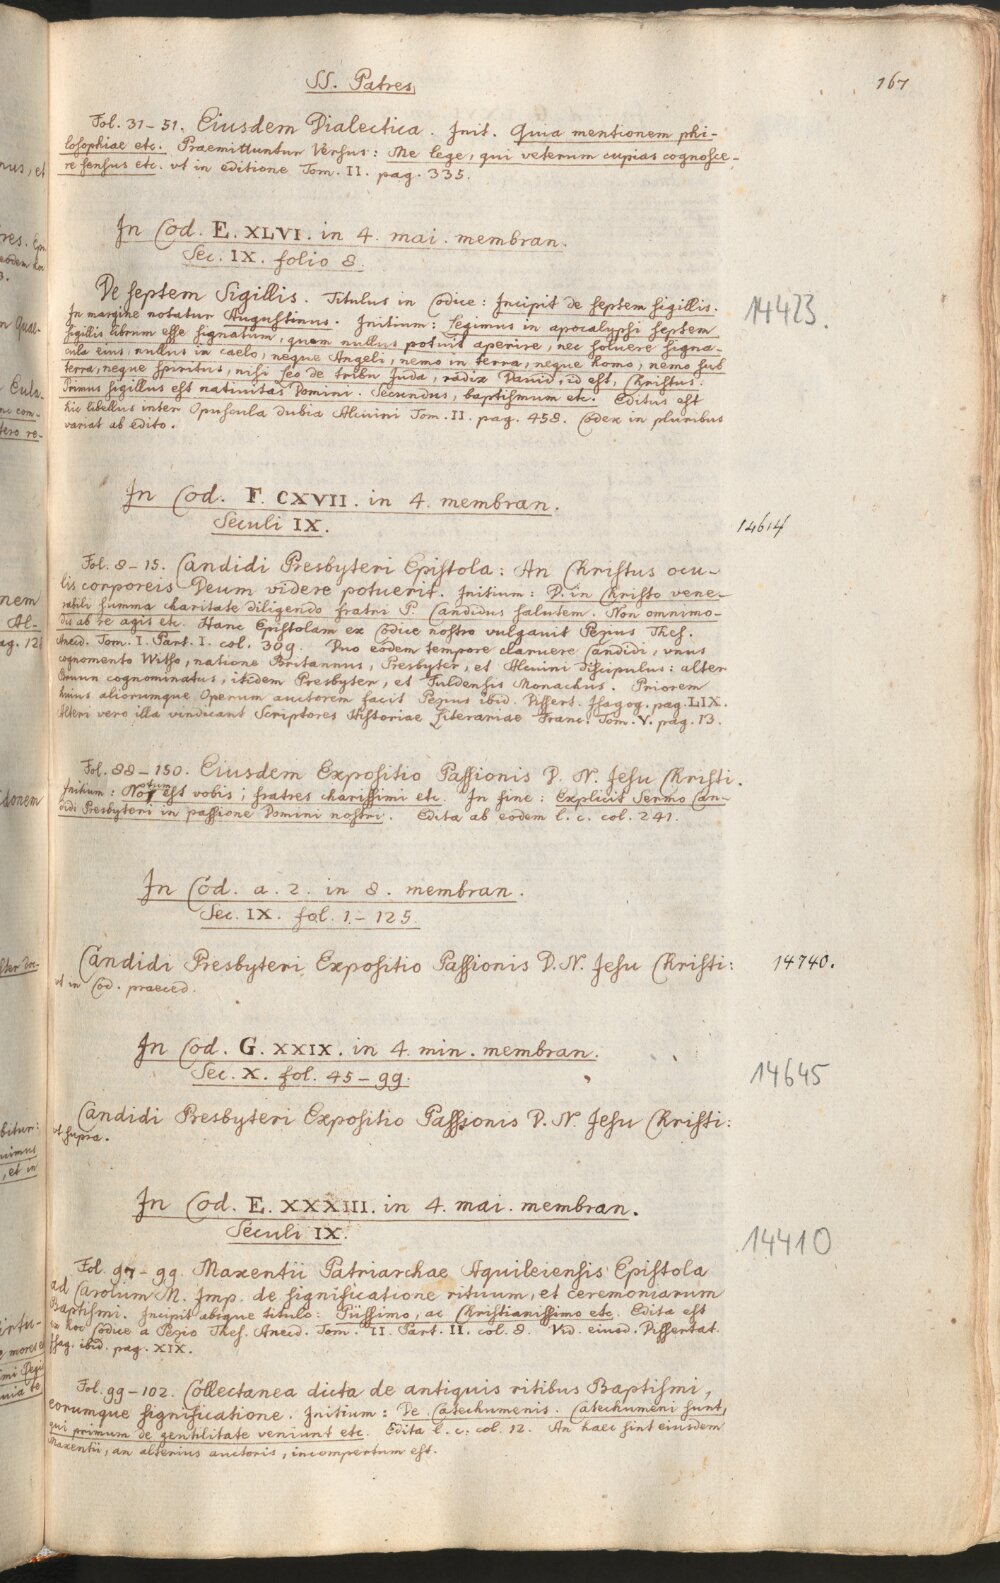 SS. Patres,
167
Fol. 31–51. Eiusdem Dialectica. Init. Quia mentionem phi-
losophiae etc. Praemittuntur Versus: Me lege, qui veterum cupias cognosce-
re sensus etc. vt in editione Tom. II. pag. 335.
In Cod. E. XLVI. in 4. mai. membran.
Sec. IX. folio 8.
De septem Sigillis. Titulus in Codice: Incipit de septem sigillis.
14423.
In margine notatur Augustinus. Initium: Legimus in apocalypsi septem
sigillis librum esse signatum, quem nullus potuit aperire, nec soluere signa-
cula eius, nullus in caelo, neque Angeli, nemo in terra, neque homo, nemo sub
terra, neque spiritus, nisi Leo de tribu Juda, radix Dauid, id est, Christus.
Primus sigillus est natiuitas Domini. Secundus, baptismum etc. Editus est
hic libellus inter Opuscula dubia Alcuini Tom. II. pag. 458. Codex in pluribus
variat ab edito.
In Cod. F. CXVII. in 4. membran.
Seculi IX.
14614
Fol. 8–15. Candidi Presbyteri Epistola: An Christus ocu-
lis corporeis Deum videre potuerit. Initium: D. in Christo vene-
rabili summa charitate diligendo fratri P. Candidus salutem. Non omnimo-
dis ab re agis etc. Hanc Epistolam ex Codice nostro vulgauit Pezius Thes.
Anecd. Tom. I. Part. I. col. 309. Duo eodem tempore claruere Candidi, vnus
cognomento Witso, natione Britannus, Presbyter, et Alcuini discipulus: alter
Bruun cognominatus, itidem Presbyter, et Fuldensis Monachus. Priorem
huius aliorumque Operum auctorem facit Pezius ibid. Dissert. Isagog. pag. LIX.
Alteri vero illa vindicant Scriptores Historiae Literariae Franc. Tom. V. pag. 13.
Fol. 88–150. Eiusdem Expositio Passionis D. N. Jesu Christi.
Initium: Notum est vobis, fratres charissimi etc. In fine: Explicit Sermo Can-
didi Presbyteri in passione Domini nostri. Edita ab eodem l. c. col. 241.
In Cod. a. 2. in 8. membran.
Sec. IX. fol. 1–125.
Candidi Presbyteri Expositio Passionis D. N. Jesu Christi:
14740.
vt in Cod. praeced.
In Cod. G. XXIX. in 4. min. membran.
Sec. X. fol. 45–99.
14645
Candidi Presbyteri Expositio Passionis D. N. Jesu Christi:
vt supra.
In Cod. E. XXXIII. in 4. mai. membran.
Seculi IX.
14410
Fol. 97–99. Maxentii Patriarchae Aquileiensis Epistola
ad Carolum M. Imp. de significatione rituum, et ceremoniarum
Baptismi. Incipit absque titulo: Piissimo, ac Christianissimo etc. Edita est
in hoc Codice a Pezio Thes. Anecd. Tom. II. Part. II. col. 8. Vid. eiusd. Dissertat.
Isag. ibid. pag. XIX.
Fol. 99–102. Collectanea dicta de antiquis ritibus Baptismi,
eorumque significatione. Initium: De Catechumenis. Catechumeni sunt,
qui primum de gentilitate veniunt etc. Edita l. c. col. 12. An haec sint eiusdem
Maxentii, an alterius auctoris, incompertum est.